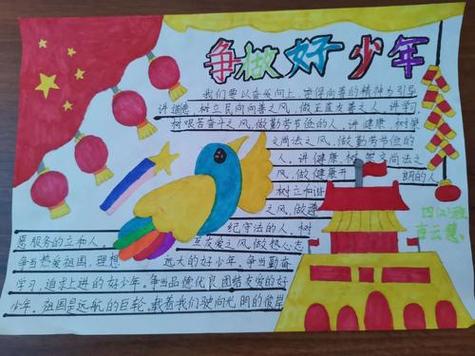 争做好少年
我们要以奋发向上、崇德向善的精神为引导
讲道德、树立民向向善之风，做正直友善之人，讲学习
树艰苦奋斗之风，做勤劳节俭的人，讲健康，树
之尚法之风，做勤劳节俭的
人，讲健康，树 尚法之
风，做健康开 朗的人
树立向
之风，做遵
纪守法的人，树
愿服务的立和人， 互友爱之风，做热心志
争当热爱祖国，理想 远大的好少年，争当勤奋
学习，追求上进的好少年，争当品德优良，团结友爱的好
少年，祖国是远航的巨轮，载着我们驶向光明的彼岸